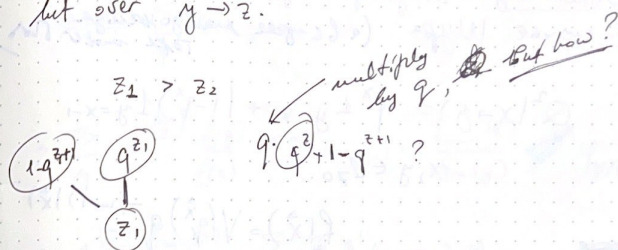 but over y → z.
z₁ > z₂
multiply
by q, but how?
1-q^{z+1} q^{z₁} q · q^z + 1 - q^{z+1} ?
z₁